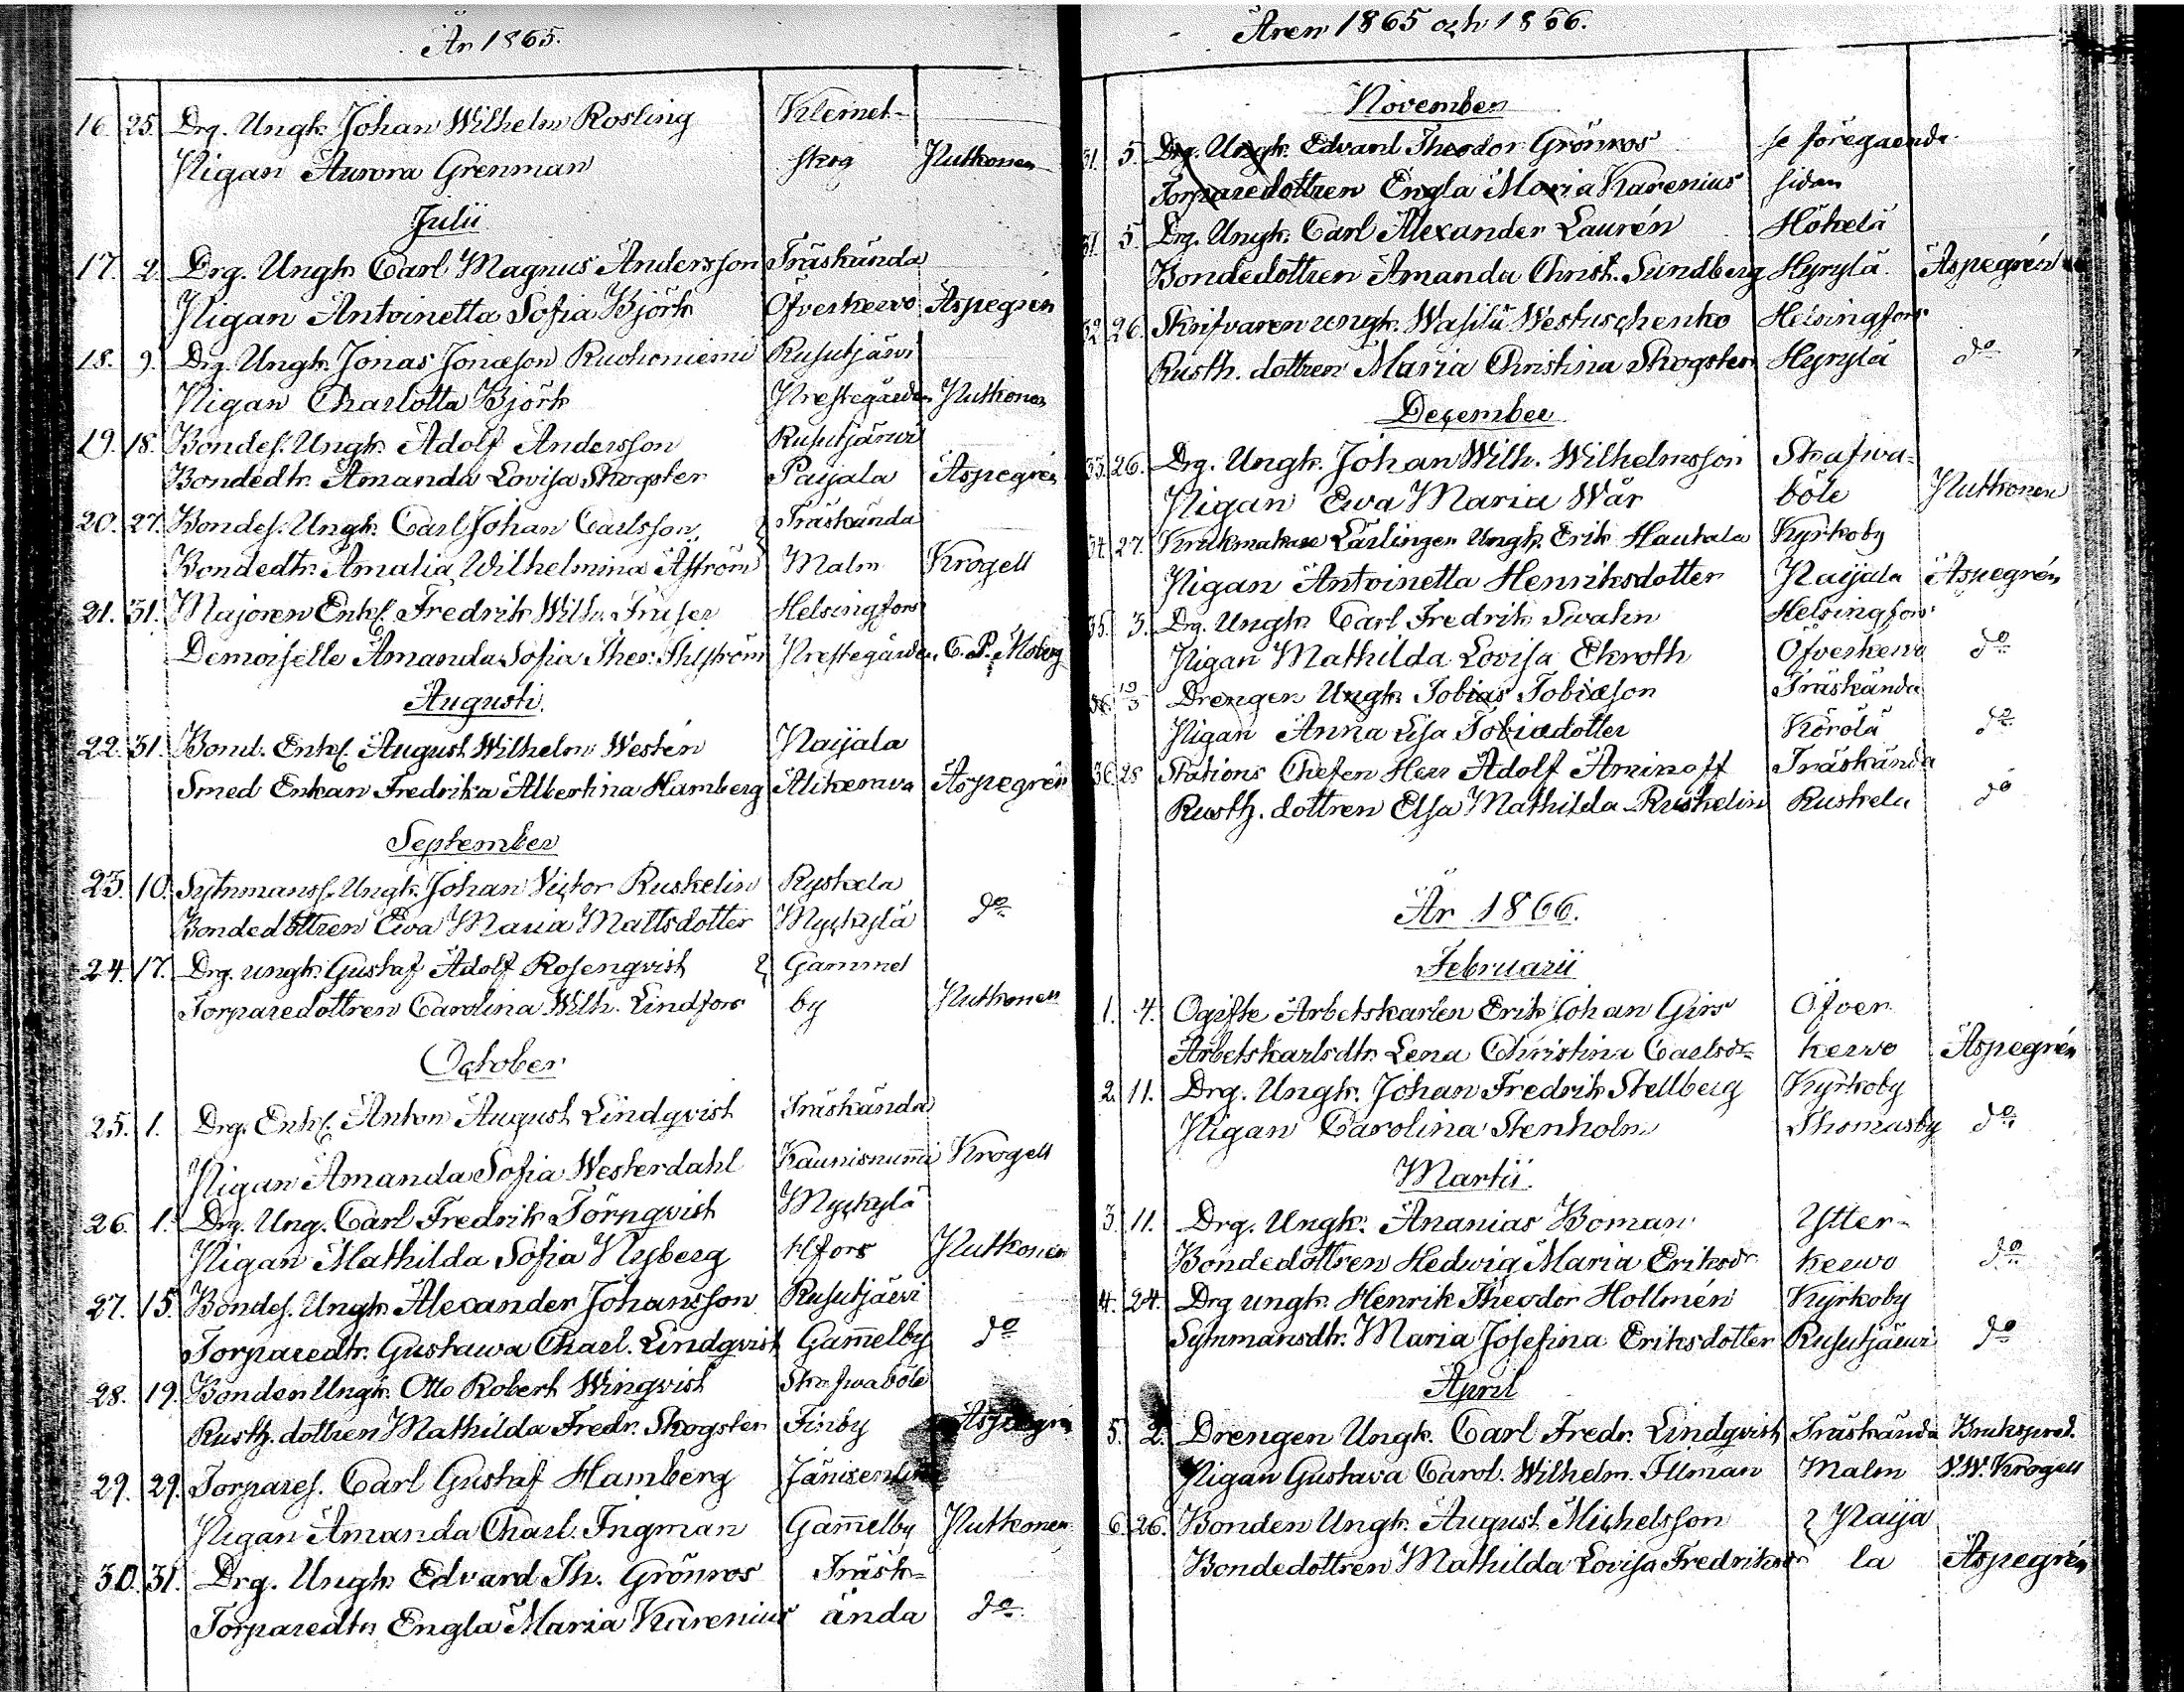 År 1865.
16. 25. Drg. Ungk. Johan Wilhelm Rosling Klemet-
Pigan Aurora Grenman skog Putkonen
Julii
17. 2. Drg. Ungk. Carl Magnus Andersson Träskända
Pigan Antoinetta Sofia Björk Öfverkervo Aspegrén
18. 9. Drg. Ungk. Jonas Jonæson Ruohoniemi Rusutjärvi
Pigan Charlotta Björk Prestegården Putkonen
19. 18. Bondes. Ungk. Adolf Andersson Rusutjärvi
Bondedtr. Amanda Lovisa Skogster Paijala Aspegrén
20. 27. Bondes. Ungk. Carl Johan Carlsson Träskända
Bondedtr. Amalia Wilhelmina Åström Malm Krogell
21. 31. Majoren Enkl. Fredrik Wilh. Fraser Helsingfors
Demoiselle Amanda Sofia Ther. Ahlström Prestegården C. P. Moberg
Augusti.
22. 31. Bond. Enkl. August Wilhelm Westén Paijala
Smed Enkan Fredrika Albertina Hamberg Alikerava Aspegrén
September
23. 10. Sytnmans s. Ungk. Johan Victor Ruskelin Ryskela
Bondedottren Eva Maria Mattsdotter Myckylä do
24. 17. Drg. ungk. Gustaf Adolf Rosenqvist Gammel
Torparedottren Carolina Wilh. Lindfors by Putkonen
October
25. 1. Drg. Enkl. Anton August Lindqvist Träskända
Pigan Amanda Sofia Westerdahl Kaunisnummi Krogell
26. 1. Drg. Ung. Carl Fredrik Törnqvist Myckylä
Pigan Mathilda Sofia Nyberg Hfors Putkonen
27. 15. Bondes. Ungk. Alexander Johansson Rusutjärvi
Torparedtr. Gustawa Charl. Lindqvist Gammelby do
28. 19. Bonden Ungk. Otto Robert Winqvist Skafwaböle
Rusth. dottren Mathilda Fredr. Skogster Finby Aspegrén
29. 29. Torpares. Carl Gustaf Hamberg
Pigan Amanda Charl. Ingman Gammelby Putkonen
30. 31. Drg. Ungk. Edvard Th. Grönros Träsk-
Torparedtr. Engla Maria Karenius ända do
Åren 1865 och 1866.
November
31. 5. Drg. Ungk. Edvard Theodor Grönros se föregaende
Torparedottren Engla Maria Karenius sidan
31. 5. Drg. Ungk. Carl Alexander Laurén Hökelä
Bondedottren Amanda Christ. Sundberg Hyrylä Aspegrén
32. 26. Skrifvaren ungk. Wasilii Westuschenko Helsingfors
Rusth. dottren Maria Christina Skogster Hyrylä do
December
33. 26. Drg. Ungk. Johan Wilh. Wilhelmsson Skafwa-
Pigan Ewa Maria Wår böle Putkonen
34. 27. Krukmakare Lärlingen Ungk. Erik Hautala Kyrkoby
Pigan Antoinetta Henriksdotter Paijala Aspegrén
35. 3. Drg. Ungk. Carl Fredrik Swahn Helsingfors
Pigan Mathilda Lovisa Ekroth Öfverkervo do
36. Drengen Ungk. Tobias Tobiæson Träskända
Pigan Anna Lisa Tobiædotter Körölä do
36. 28 Stations Chefen Herr Adolf Aminoff Träskända
Rusth. dottren Elsa Mathilda Ruskelin Ruskela do
År 1866.
Februarii
1. 4. Ogifte Arbetskarlen Erik Johan Girs Öfver
Arbetskarlsdtr. Lena Christina Carlsdr kervo Aspegrén
2. 11. Drg. Ungk. Johan Fredrik Stellberg Kyrkoby
Pigan Carolina Stenholm Thomasby do
Martii.
3. 11. Drg. Ungk. Ananias Boman Ytter-
Bondedottren Hedwig Maria Eriksdr kervo do
4. 24. Drg ungk. Henrik Theodor Hollmén Kyrkoby
Sytnmansdtr. Maria Josefina Eriksdotter Rusutjärvi do
April
5. 2. Drengen Ungk. Carl Fredr. Lindqvist Träskända Brukspred.
Pigan Gustava Carol. Wilhelm. Illman Malm V. W. Krogell
6. 26. Bonden Ungk. August Michelsson Paija
Bondedottren Mathilda Lovisa Fredriksdr la Aspegrén